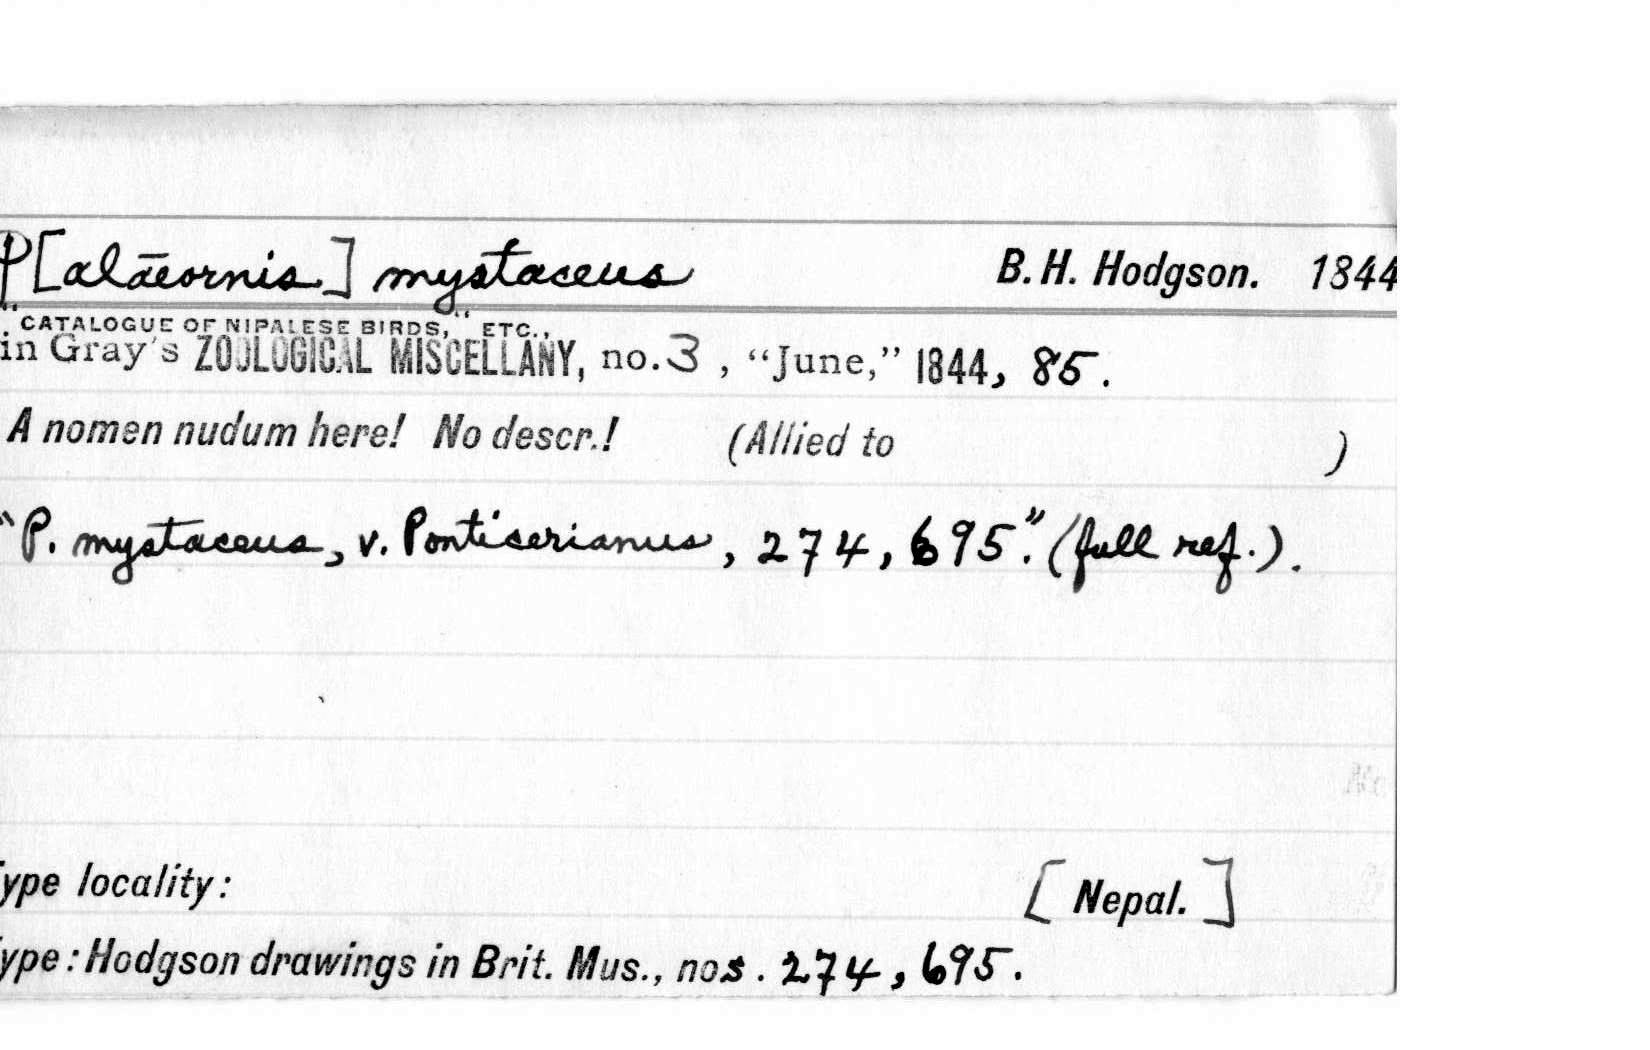 P[alāeornis] mystaceus B.H. Hodgson. 1844
"CATALOGUE OF NIPALESE BIRDS," ETC.,
in Gray's ZOOLOGICAL MISCELLANY, no.3, “June,” 1844, 85.
A nomen nudum here! No descr.! (Allied to )
"P. mystaceus, v. Ponticerianus, 274, 695". (full ref.).
ype locality: [Nepal.]
ype: Hodgson drawings in Brit. Mus., nos. 274, 695.